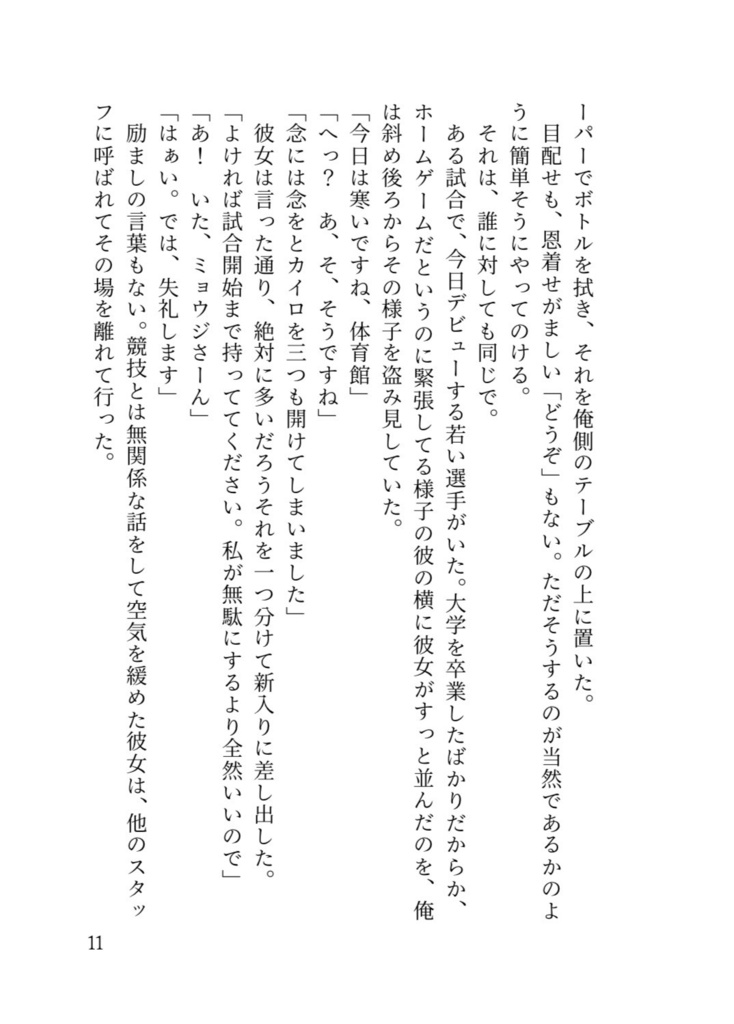 ーパーでボトルを拭き、それを俺側のテーブルの上に置いた。
　目配せも、恩着せがましい「どうぞ」もない。ただそうするのが当然であるかのよ
うに簡単そうにやってのける。
　それは、誰に対しても同じで。
　ある試合で、今日デビューする若い選手がいた。大学を卒業したばかりだからか、
ホームゲームだというのに緊張してる様子の彼の横に彼女がすっと並んだのを、俺
は斜め後ろからその様子を盗み見していた。
「今日は寒いですね、体育館」
「へっ？　あ、そ、そうですね」
「念には念をとカイロを三つも開けてしまいました」
　彼女は言った通り、絶対に多いだろうそれを一つ分けて新入りに差し出した。
「よければ試合開始まで持っててください。私が無駄にするより全然いいので」
「あ！　いた、ミョウジさーん」
「はぁい。では、失礼します」
　励ましの言葉もない。競技とは無関係な話をして空気を緩めた彼女は、他のスタッ
フに呼ばれてその場を離れて行った。
11